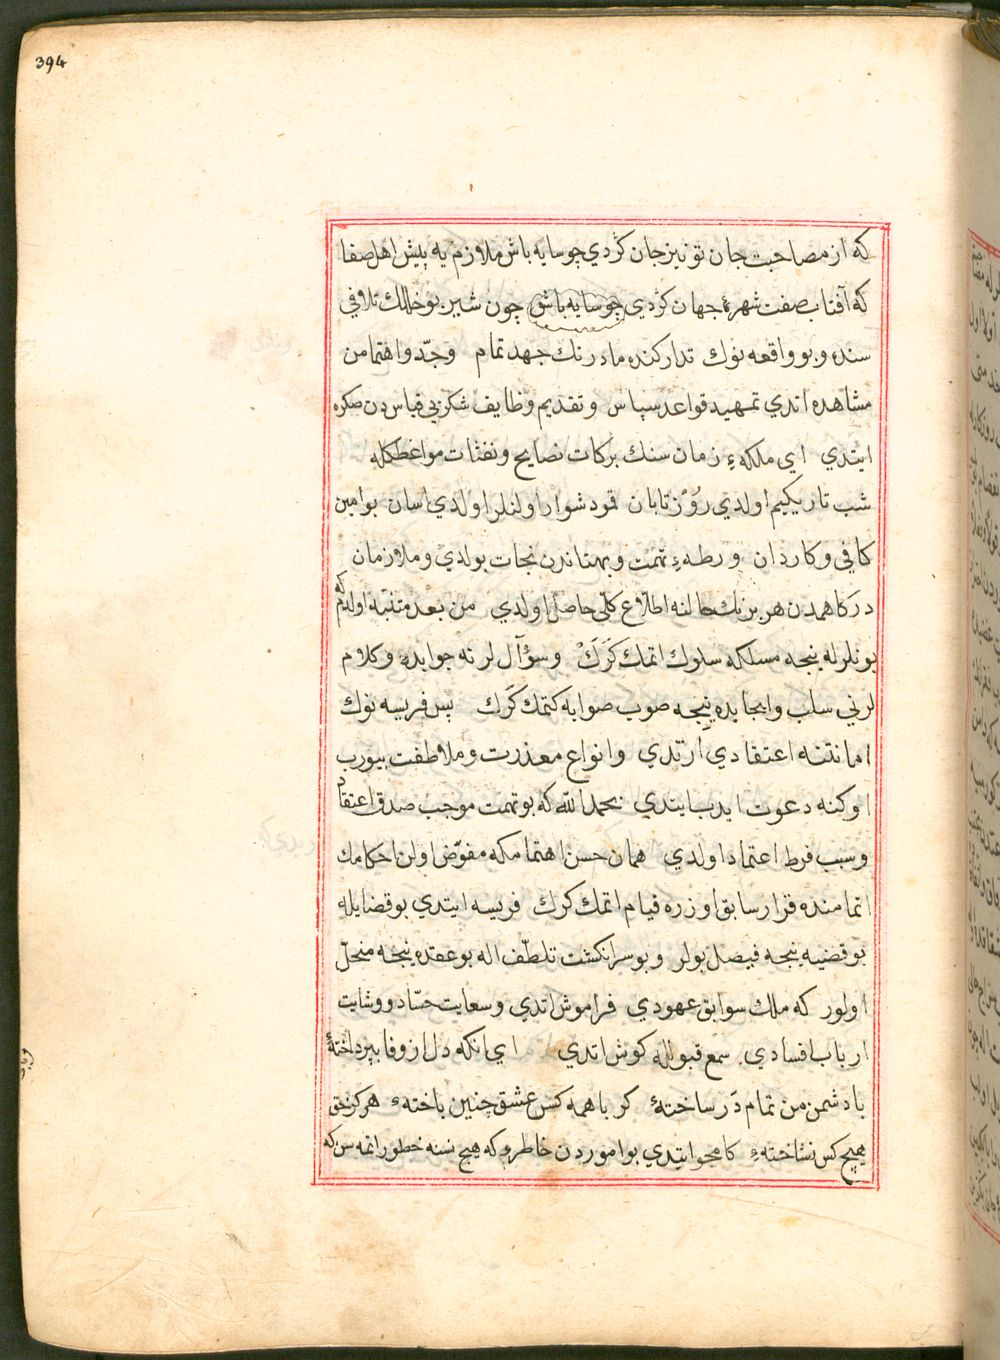 394
كه از مصاحبت جان تو نیز جان كردي چو سایه باش ملازم به پیش اهل صفا
كه آفتاب صفت شهرۀ جهان كردي چو سایه باش چون شیر بو خللك تلافي
سنده و بو واقعه نوك تداركنده مادرنك جهد تمام وجدّ واهتمامن
مشاهده اتدي تمهید قواعد سپاس وتقدیم وظایف شكر بي قیاس دن صكره
ایتدي اي ملكهء زمان سنك بركات نصایح ونفثات مواعظكله
شب تاریكیم اولدي رُوز تابان قمو دشوار اولنلر اولدي اسان بو امین
كافي وكاردان ورطهء تهمت وبهتاندن نجات بولدي وملازمان
دركاهمدن هر برنك حالنه اطلاع كلّي حاصل اولدي من بعد متنبّه اولدم كه
بونلرله نیجه مسلكه سلوك اتمك كَرَكْ وسؤآل لرنه جوابده وكلام
لرني سلب وایجابده نیجه صوب صوابه كتمك كَرك پس فریسه نوك
امانتنه اعتقادي ارتدي وانواع معذرت وملاطفت بیورب
اوكنه دعوت ایدب ایتدي بحمد الله كه بو تهمت موجب صدق اعتقاد
وسبب فرط اعتماد اولدي همان حسن اهتمامكه مفوّض اولن احكامك
اتمامنده قرار سابق اوزره قیام اتمك كرك فریسه ایتدي بو قضایله
بو قضیه نیجه فیصل بولر وبو سرانكشت تلطّف اله بو عقده نیجه منحلّ
اولور كه ملك سوابق عهودي فراموش اتدي وسعایت حسّاد ووشایت
ارباب افسادي سمع قبولله كوش اتدي اي انكه دل از وفا بپرداختۀ
با دشمن من تمام دَر ساختۀ كر با همه كس عشق چنین باختهء هركز حق
هیچ كس نشناختهء كامجو ایتدي بو اموردن خاطروكه هیچ نسنه خطور اتمه سن كه